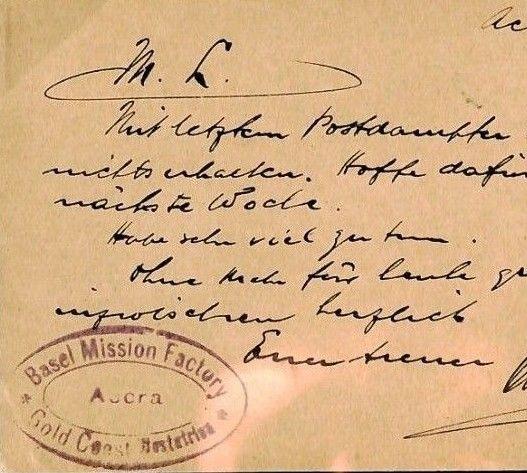 Ac
M. L.
Mit letztem Postdampfer
nichts erhalten. Hoffe dafür
nächste Woche.
Habe sehr viel zu tun.
Ohne mehr für heute
inzwischen herzlich
Euer treuer
Basel Mission Factory
Accra
Gold Coast